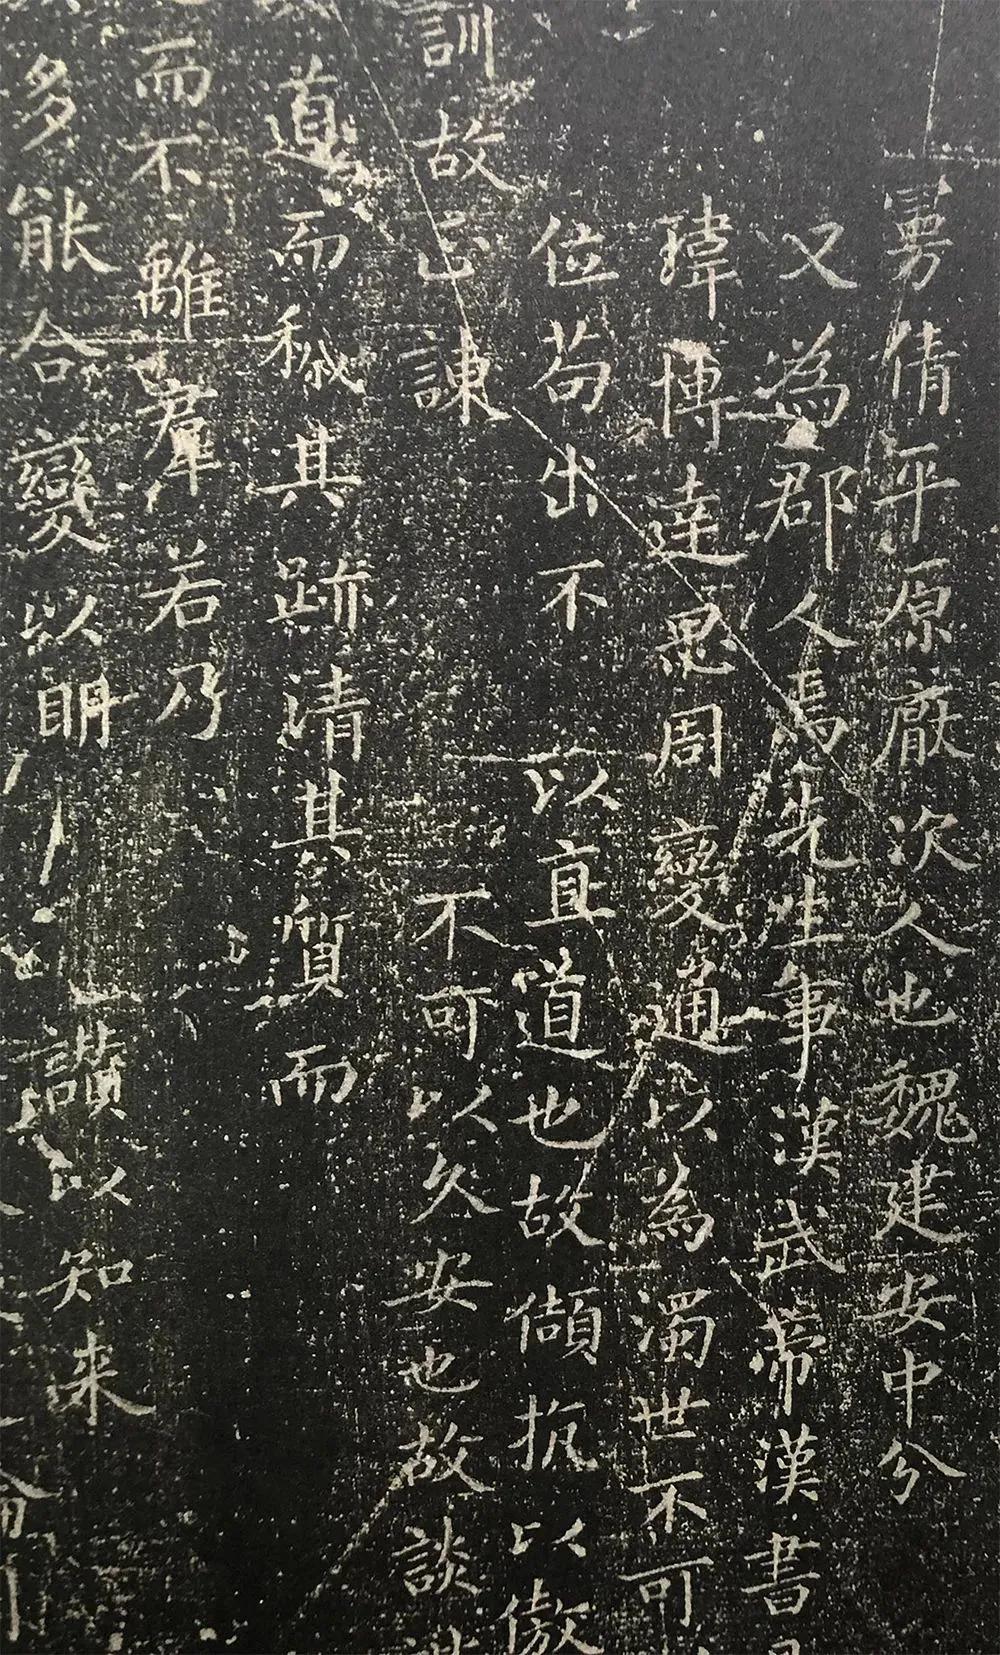 曼倩平原厭次人也魏建安中分
又為郡人焉先生事漢武帝漢書
瑋博達思周變通以為濁世不可
位苟出不以直道也故傾抗以傲
訓故正諫不可以久安也故談
道而穢其跡清其質而
而不離羣若乃
多能合變以明讃以知来